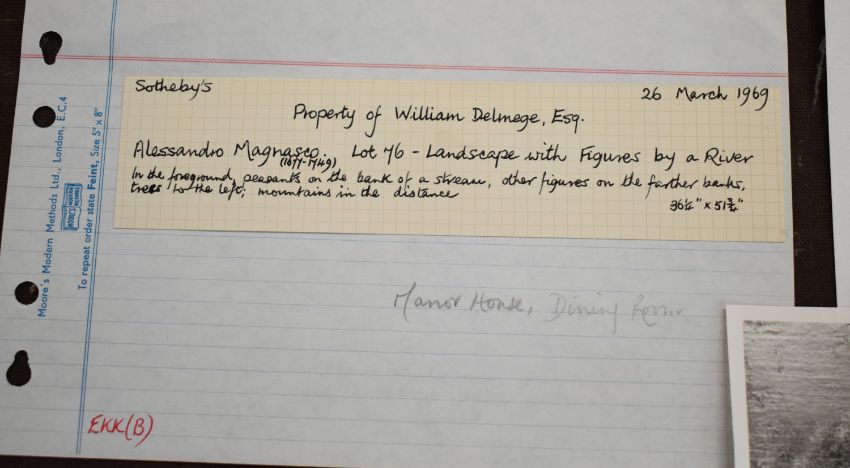 Sotheby's 26 March 1969
Property of William Delmege, Esq.
Alessandro Magnasco. Lot 76 - Landscape with Figures by a River
(1677-1749)
In the foreground, peasants on the bank of a stream, other figures on the farther banks,
trees to the left; mountains in the distance
36½" x 51¾"
Manor House, Dining Room
EKK(B)
Moore's Modern Methods Ltd., London, E.C.4
To repeat order state Feint, Size 5" x 8"